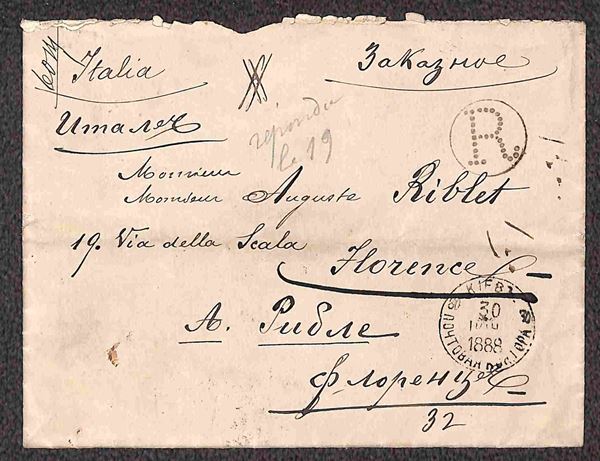 Italia
Заказное
Италія
répondu
le 19
R.
Monsieur
Monsieur Auguste Riblet
19. Via della Scala
Florence
А. Рибле
Флоренція
32
КІЕВЪ
30
1888
ПОЧТОВАЯ КОНТОРА